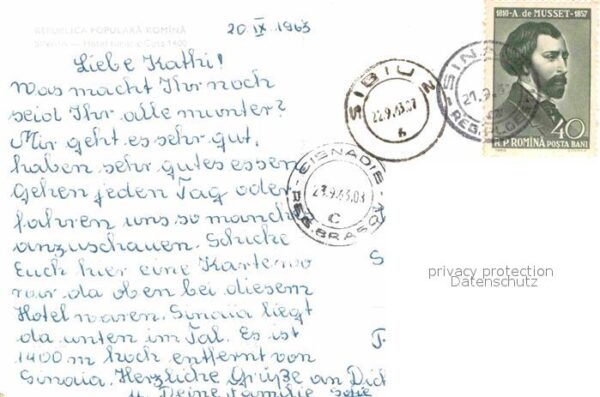 REPUBLICA POPULARĂ ROMÎNĂ
SINAIA — Hotel turistic Cota 1400
20 IX 1963
Liebe Kathi!
Was macht Ihr noch
seid Ihr alle munter?
Mir geht es sehr gut,
haben sehr gutes essen
Gehen jeden Tag oder
fahren uns so manch
anzuschauen. Schicke
Euch hier eine Karte wo
wir da oben bei diesem
Hotel waren. Sinaia liegt
da unten im Tal. Es ist
1400 m hoch entfernt von
Sinaia. Herzliche Grüße an Dich
u. Deine Familie Sofie
S
T.
1810 - A. de MUSSET - 1857
40
R.P. ROMÎNĂ POSTA BANI
SINAIA
21.9.63
REG. PLOEȘTI
SIBIU 2
22.9.63.07
6
CISNADIE
23.9.63.08
C
REG. BRASOV
privacy protection
Datenschutz